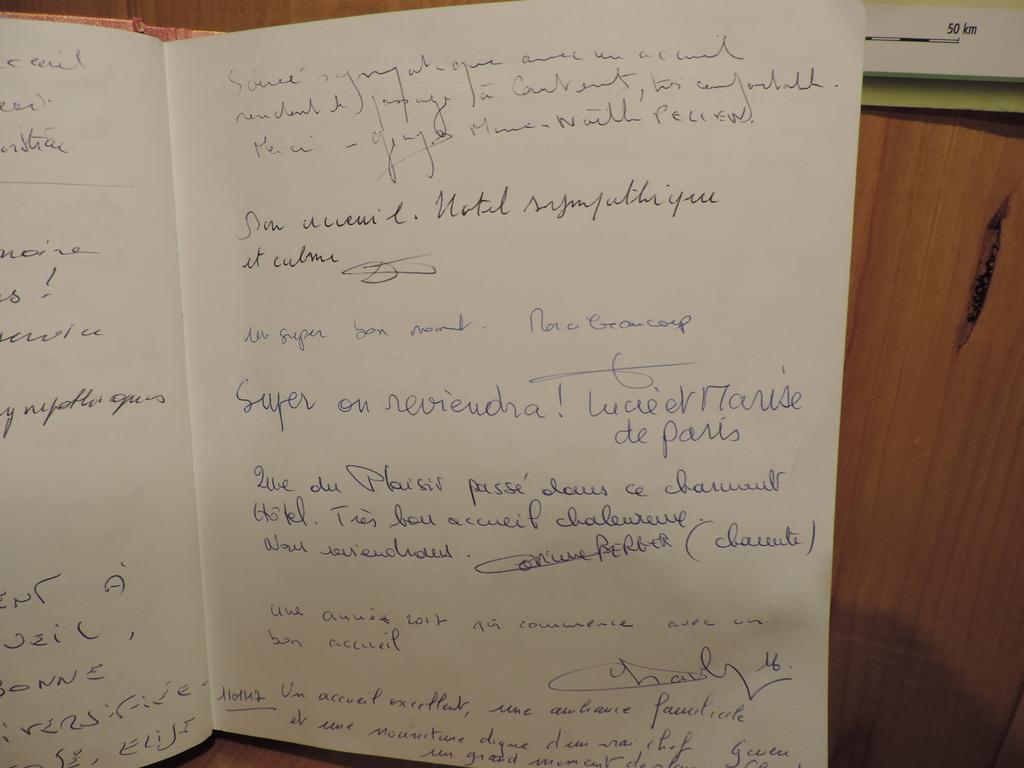 50 km
ccueil
noire
es !
service
sympathiques
ENT À
UEIL,
BONNE
IVERSIFIÉE
ELISE
Soirée sympatique avec un accueil
rendant le passage à Cauterets, très confortable.
Merci - Marie-Noëlle PELLEN.
Bon accueil. Hotel sympathique
et calme
Un super bon moment. Merci beaucoup
Super on reviendra ! Lucie et Marise
de Paris
Que du Plaisir passé dans ce charmant
Hôtel. Très bon accueil chaleureux
Nous reviendrons. Corinne BERGER (charente)
une année 2017 qui commence avec un
bon accueil
16.
1/01/17 Un accueil excellent, une ambiance familiale
et une nourriture digne d'un vrai chef Gwen
un grand moment de